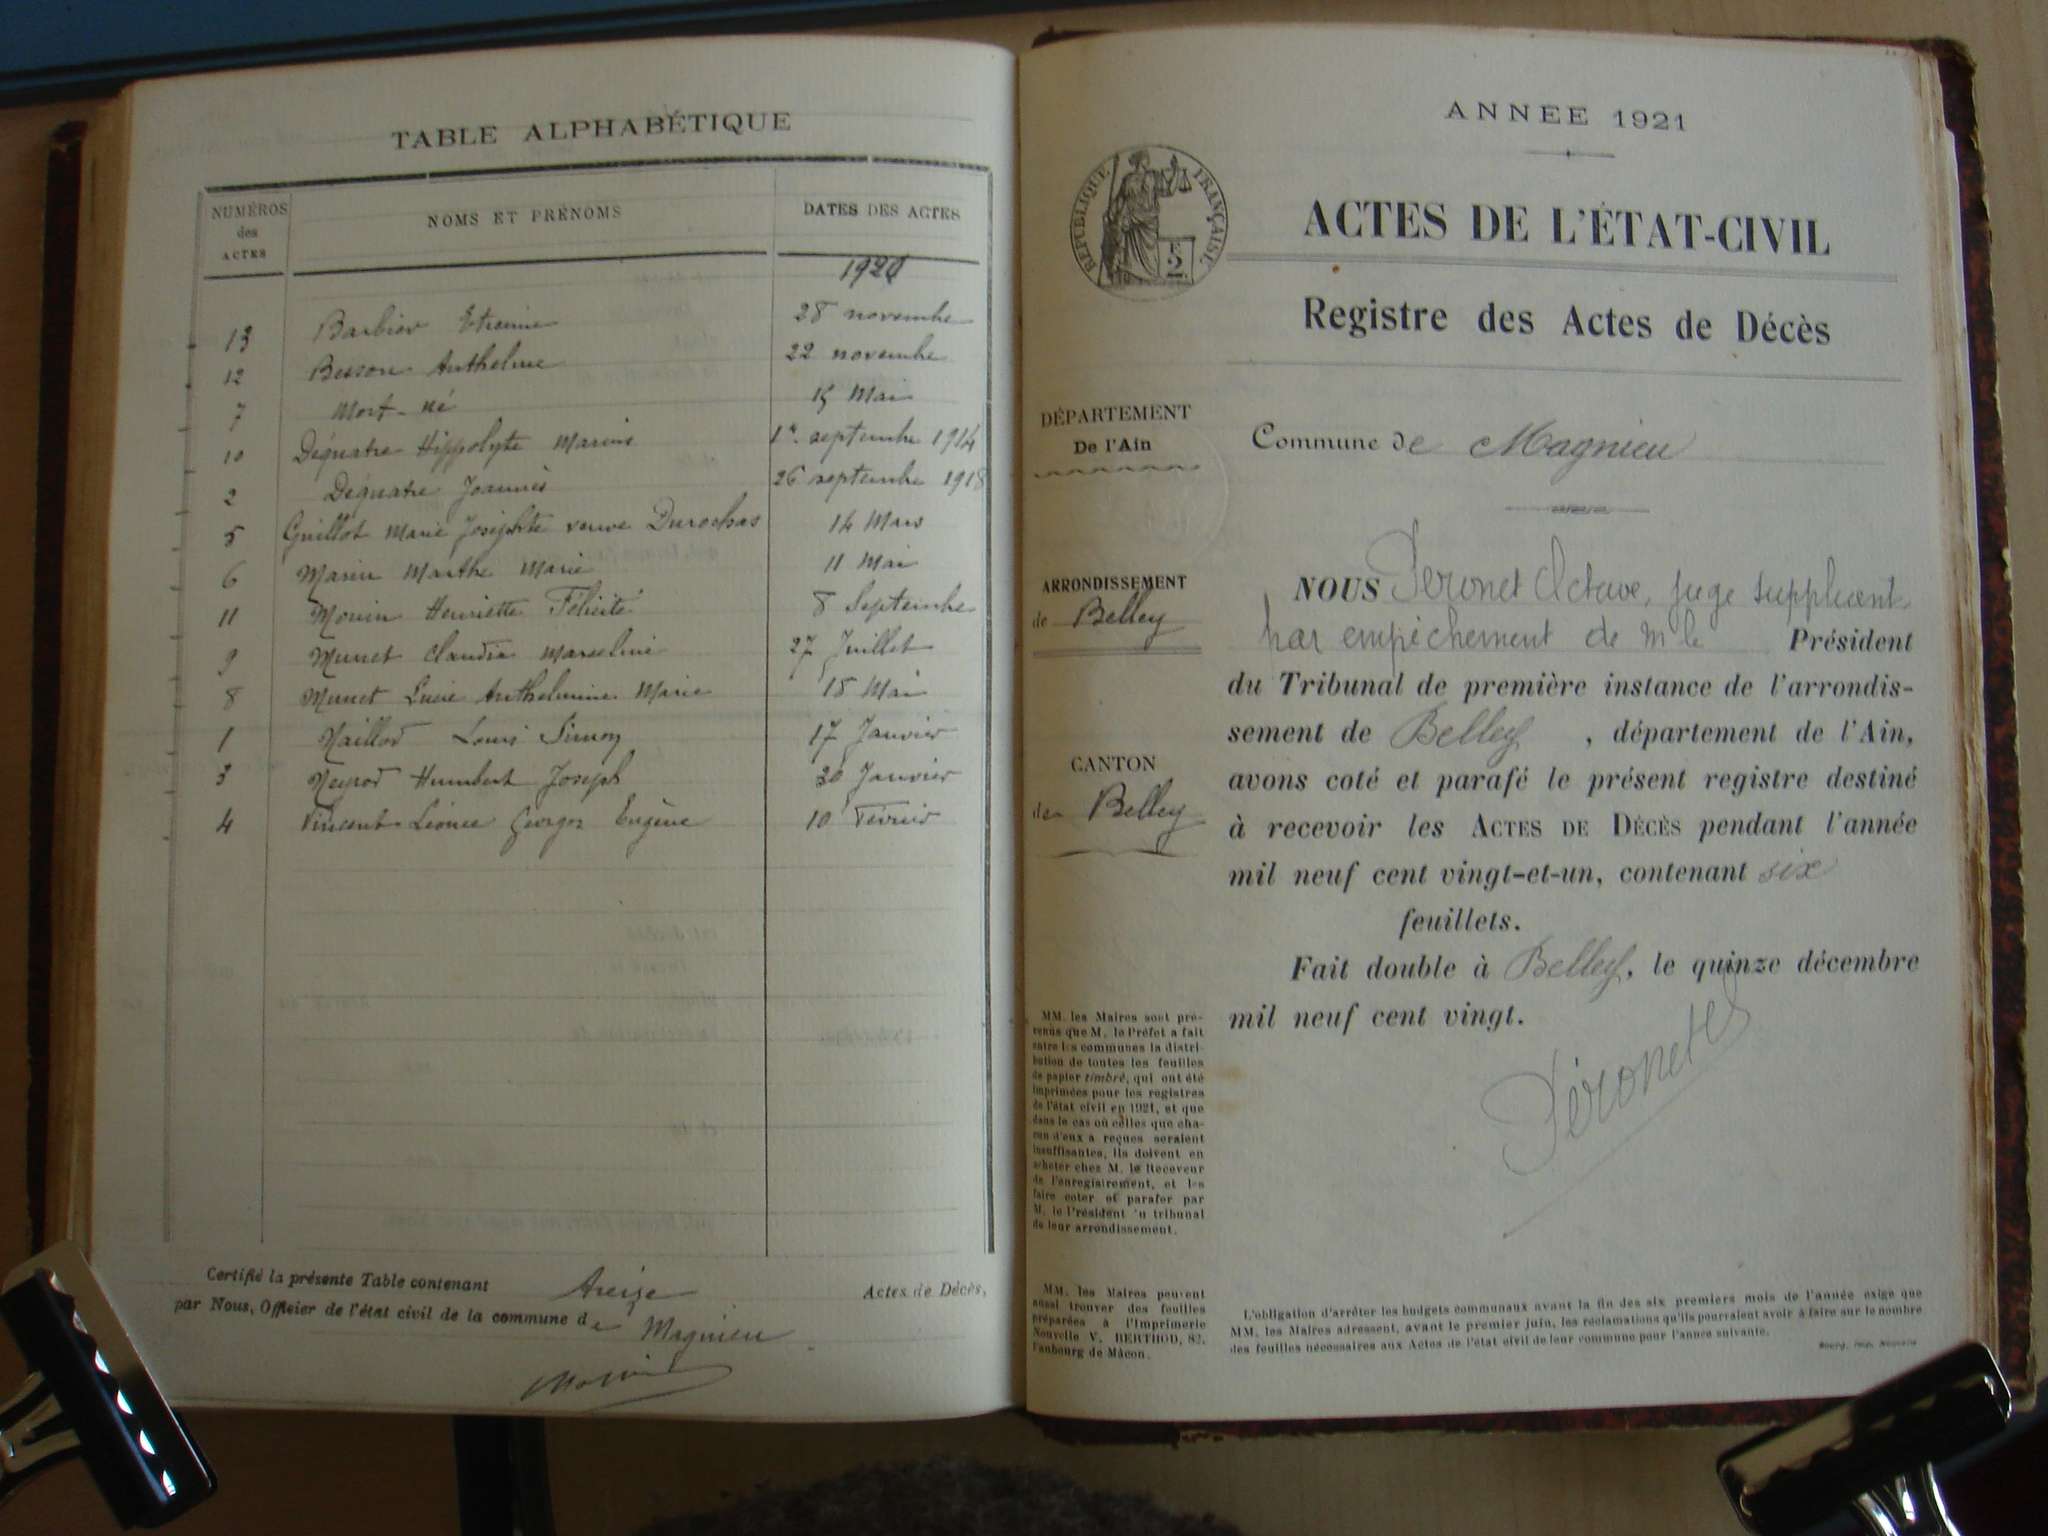 TABLE ALPHABÉTIQUE
NUMÉROS des ACTES
NOMS ET PRÉNOMS
DATES DES ACTES
1920
13 Barbier Etienne 28 novembre
12 Besson Anthelme 22 novembre
7 Mort-né 15 Mai
10 Déquatre Hippolyte Marius 1er septembre 1914
2 Dequatre Joannès 26 septembre 1918
5 Guillot Marie Josephte veuve Durochas 14 Mars
6 Marin Marthe Marie 11 Mai
11 Morin Henriette Félicité 8 Septembre
9 Munet Claudia Marceline 27 Juillet
8 Munet Lucie Anthelmine Marie 18 Mai
1 Naillod Louis Simon 17 Janvier
3 Neyrod Humbert Joseph 20 Janvier
4 Vincent Léonce Georges Eugène 10 Février
Certifié la présente Table contenant Treize Actes de Décès,
par Nous, Officier de l'état civil de la commune de Magnieu
ANNEE 1921
RÉPUBLIQUE FRANÇAISE
2
ACTES DE L'ÉTAT-CIVIL
Registre des Actes de Décès
DÉPARTEMENT
De l'Ain
Commune de Magnieu
ARRONDISSEMENT
de Belley
CANTON
de Belley
NOUS Péronet Octave, juge suppléant
par empêchement de M le Président
du Tribunal de première instance de l'arrondis-
sement de Belley, département de l'Ain,
avons coté et parafé le présent registre destiné
à recevoir les ACTES DE DÉCÈS pendant l'année
mil neuf cent vingt-et-un, contenant six
feuillets.
Fait double à Belley, le quinze décembre
mil neuf cent vingt.
Péronet
MM. les Maires sont pré-
venus que M. le Préfet a fait
entre les communes la distri-
bution de toutes les feuilles
de papier timbré, qui ont été
imprimées pour les registres
de l'état civil en 1921, et que
dans le cas où celles que cha-
cun d'eux a reçues seraient
insuffisantes, ils doivent en
acheter chez M. le Receveur
de l'enregistrement, et les
faire coter et parafer par
M. le Président du tribunal
de leur arrondissement.
MM. les Maires peuvent
aussi trouver des feuilles
préparées à l'Imprimerie
Nouvelle V. BERTHOD, 82,
Faubourg de Mâcon.
L'obligation d'arrêter les budgets communaux avant la fin des six premiers mois de l'année exige que
MM. les Maires adressent, avant le premier juin, les réclamations qu'ils pourraient avoir à faire sur le nombre
des feuilles nécessaires aux Actes de l'état civil de leur commune pour l'année suivante.
Bourg, Imp. Nouvelle